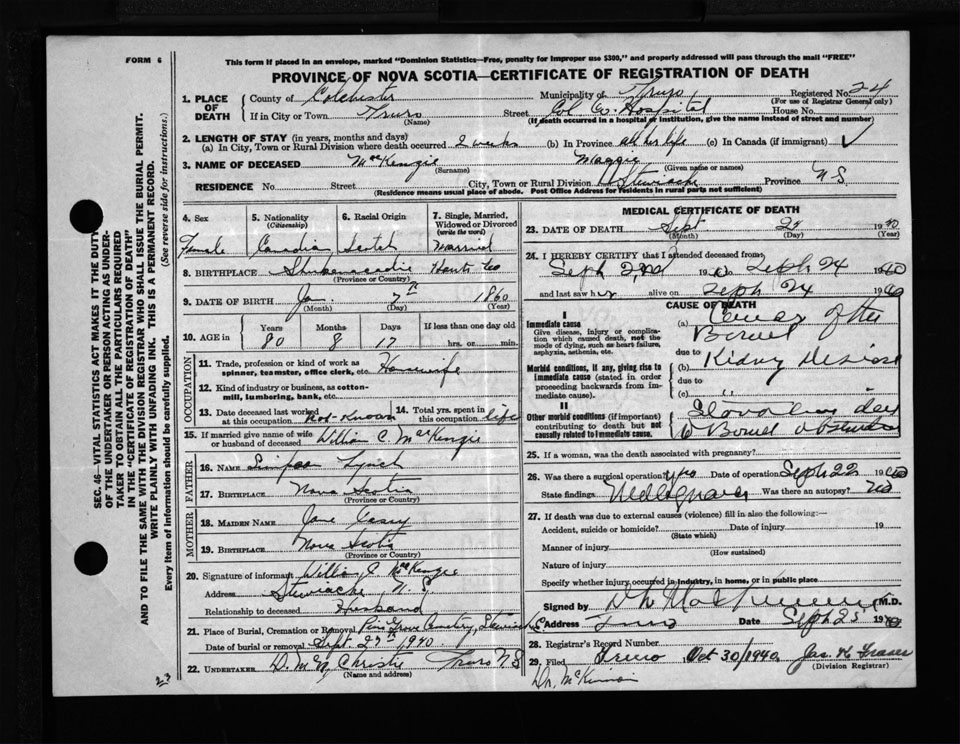 FORM 6
This form if placed in an envelope, marked "Dominion Statistics—Free, penalty for improper use $300," and properly addressed will pass through the mail "FREE"
PROVINCE OF NOVA SCOTIA—CERTIFICATE OF REGISTRATION OF DEATH
SEC. 46—VITAL STATISTICS ACT MAKES IT THE DUTY
OF THE UNDERTAKER OR PERSON ACTING AS UNDER-
TAKER TO OBTAIN ALL THE PARTICULARS REQUIRED
IN THE "CERTIFICATE OF REGISTRATION OF DEATH"
AND TO FILE THE SAME WITH THE DIVISION REGISTRAR WHO SHALL ISSUE THE BURIAL PERMIT.
WRITE PLAINLY WITH UNFADING INK. THIS IS A PERMANENT RECORD.
Every item of Information should be carefully supplied. (See reverse side for instructions.)
1. PLACE OF DEATH County of Colchester Municipality of Truro Registered No. 24
(For use of Registrar General only)
If in City or Town Truro Street Col. Co. Hospital House No.
(Name) (If death occurred in a hospital or institution, give the name instead of street and number)
2. LENGTH OF STAY (in years, months and days)
(a) In City, Town or Rural Division where death occurred 2 weeks (b) In Province all her life (c) In Canada (if immigrant)
3. NAME OF DECEASED MacKenzie Maggie
(Surname) (Given name or names)
RESIDENCE No. Street City, Town or Rural Division Stewiacke Province N-S
(Residence means usual place of abode. Post Office Address for residents in rural parts not sufficient)
4. Sex 5. Nationality (Citizenship) 6. Racial Origin 7. Single, Married, Widowed or Divorced (write the word)
Female Canadian Scotch Married
8. BIRTHPLACE Shubenacadie Hants Co
(Province or Country)
9. DATE OF BIRTH Jan. 7th 1860
(Month) (Day) (Year)
10. AGE in Years Months Days If less than one day old
80 8 17 hrs. or min.
OCCUPATION
11. Trade, profession or kind of work as spinner, teamster, office clerk, etc. Housewife
12. Kind of industry or business, as cotton-mill, lumbering, bank, etc.
13. Date deceased last worked at this occupation Not-Known 14. Total yrs. spent in this occupation life
15. If married give name of wife or husband of deceased William C. MacKenzie
FATHER
16. NAME Simpson Lynch
17. BIRTHPLACE Nova Scotia
(Province or Country)
MOTHER
18. MAIDEN NAME Jane
19. BIRTHPLACE Nova Scotia
(Province or Country)
20. Signature of informant William C. MacKenzie
Address Stewiacke N. S.
Relationship to deceased Husband
21. Place of Burial, Cremation or Removal Pine Grove Cemetery, Stewiacke
Date of burial or removal Sept. 27th, 1940.
22. UNDERTAKER D. M. N. Christie Truro N S
(Name and address)
23
MEDICAL CERTIFICATE OF DEATH
23. DATE OF DEATH Sept 24 1940
(Month) (Day) (Year)
24. I HEREBY CERTIFY that I attended deceased from
Sept 2nd 19 to Sept 24 1940
and last saw her alive on Sept 24 1940
CAUSE OF DEATH
I
Immediate cause
Give disease, injury or complication which caused death, not the mode of dying, such as heart failure, asphyxia, asthenia, etc.
(a) Cancer of the
Bowel
due to
Morbid conditions, if any, giving rise to immediate cause (stated in order proceeding backwards from immediate cause).
(b) Kidney
due to
(c)
II
Other morbid conditions (if important) contributing to death but not causally related to immediate cause.
Bowel
25. If a woman, was the death associated with pregnancy?
26. Was there a surgical operation? yes Date of operation Sept 22 1940
State findings Was there an autopsy? No
27. If death was due to external causes (violence) fill in also the following:—
Accident, suicide or homicide? Date of injury 19
(State which)
Manner of injury
(How sustained)
Nature of injury
Specify whether injury occurred in industry, in home, or in public place
Signed by M.D.
Address Truro Date Sept 25 1940
28. Registrar's Record Number
29. Filed Truro Oct. 30/1940. Jas. K. Fraser
(Division Registrar)
Dr. McKinnon